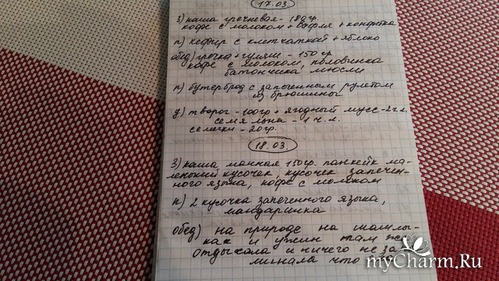 17.03
з) каша гречневая - 180 гр.
кофе с молоком + вафля + конфетка
п) кефир с клетчаткой + яблоко
обед) гречка + гуляш - 150 гр
кофе с молоком, половинка
батончика мюсли
п) бутерброд с запеченным рулетом
из брюшины
у) творог - 100гр + ягодный мусс - 2 ч.л.
семя льна - 1 ч.л.
семечки - 20гр.
18.03
з) каша манная 150гр. панкейк ма-
ленький кусочек, кусочек запечен-
ного языка, кофе с молоком
п) 2 кусочка запеченного языка,
мандаринка
обед) на природе на шашлы-
ках и ужин там же
отдыхала и ничего не за
минала что
myCharm.Ru